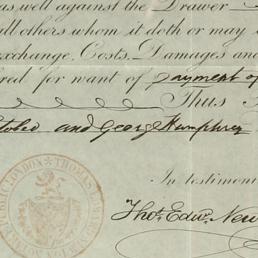 as well against the Drawer
all others whom it doth or may
exchange, Costs, Damages and
red for want of payment of
Thus
and George Humphrey
In testimoni
Thos. Edwd. New
LONDON * THOMAS